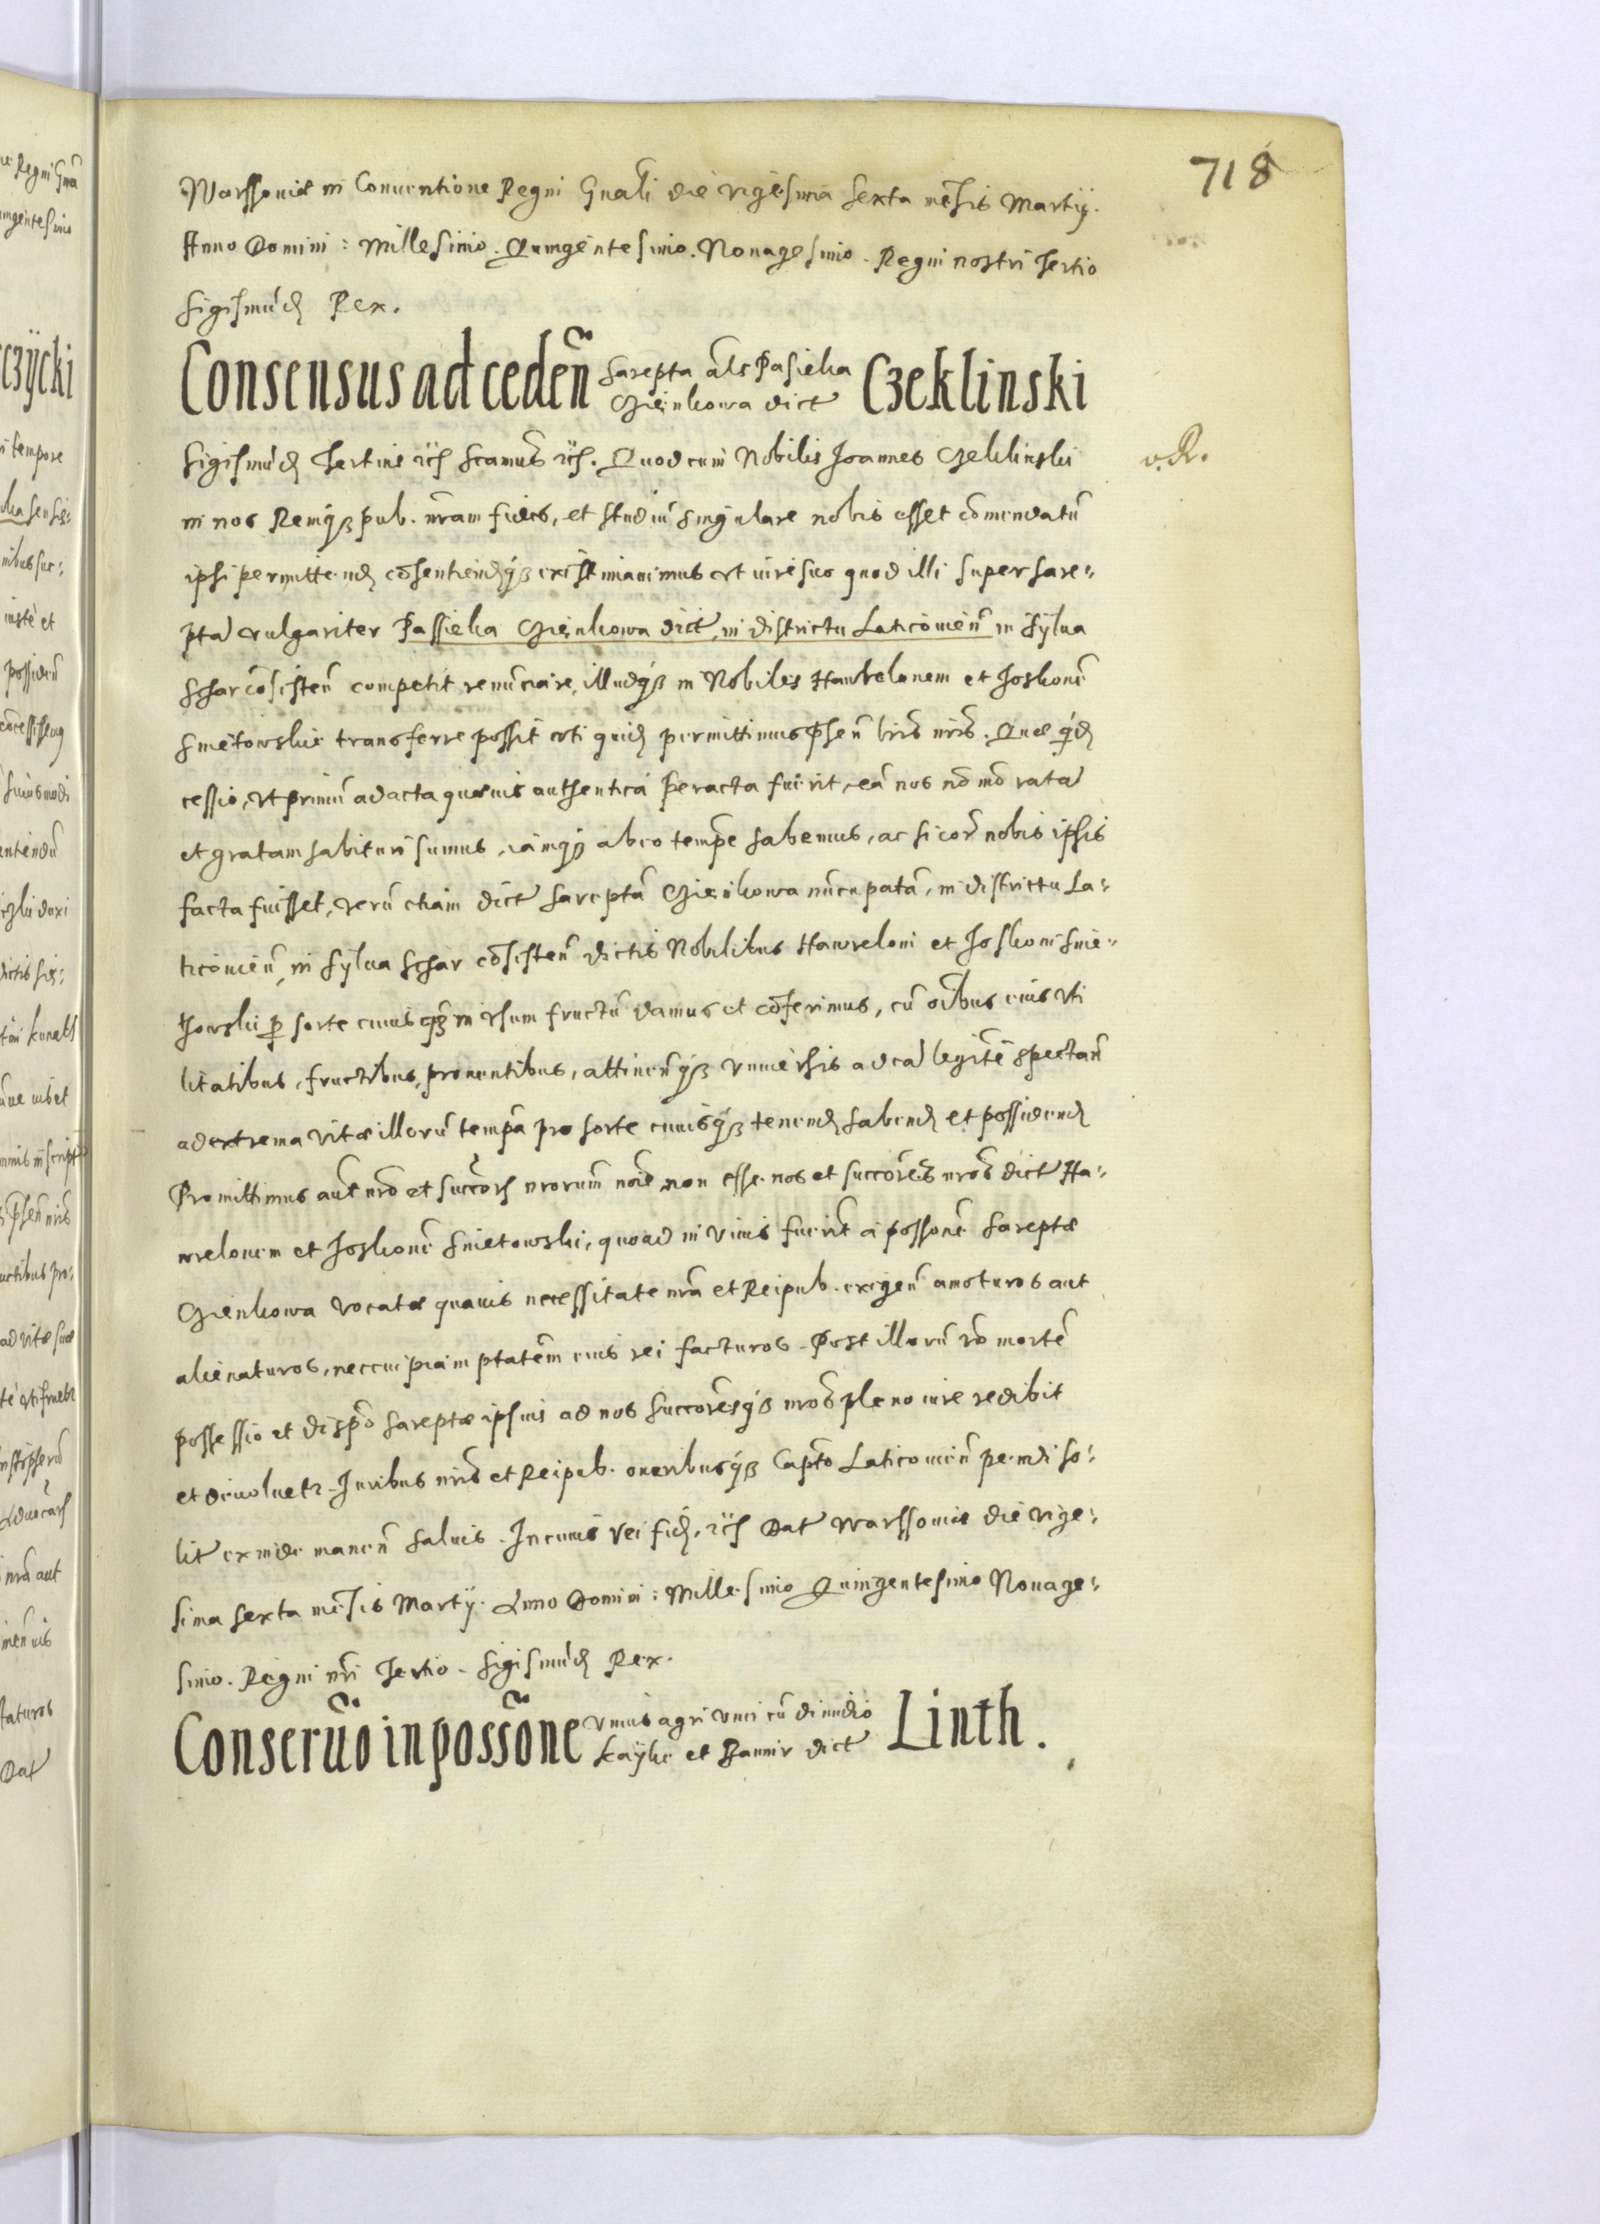 718
Warssoviæ in Conventione Regni Gnali die vigesima sexta mensis Martij.
Anno Domini: Millesimo. Quingentesimo. Nonagesimo. Regni nostri Tertio
Sigismud Rex.
Consensus ad ceden Sarepta als Pasieka Czeklinski
Gienkowa dict
Sigismud Tertius Scamus. Quod cum Nobilis Joannes Czeklinski
v. R.
in nos Remqз pub. nram fides, et studiu singulare nobis esset comendatu
ipsi permittend cosentiendqз existimavimus vt iure suo quod illi super sare-
pta vulgariter Passieka Gienkowa dict, in districtu Laticovien in sylva
Schar cosisten competit renuciare, illudqз in Nobiles Hawrelonem et Joskone
Smetowskie transferre possit vti quid permittimus psen lris nris. Quæ qd
cessio, vt primu ad acta quævis authentica peracta fuerit, ea nos no mo rata
et gratam habituri sumus, iamqз ab eo tempe habemus, ac si cor nobis ipsis
facta fuisset, veru etiam dict sarepta Gienkowa nucupata, in districtu La-
ticovien, in sylva Schar cosisten dictis Nobilibus Hawreloni et Joskoni Sme-
thowski p sorte cuius qз in vsum fructu damus et coferimus, cu oibus eius vti
litatibus, fructibus, proventibus, attinenqз vniversis ad ea legitime spectan
ad extrema vitæ illoru tempa pro sorte cuiusqз tenend habend et possidend
Promittimus aut nro et succor nrorum noie non esse nos et succores nros dict Ha-
wrelonem et Joskone Smetowski, quoad in vivis fuerit a possone sareptæ
Gienkowa vocatæ quavis necessitate nra et Reipub. exigen amoturos aut
alienaturos, nec cuipiam ptatem eius rei facturos. Post illoru vo morte
possessio et dispo sareptæ ipsius ad nos succoresqз nros pleno iure redibit
et devoluetr. Juribus nris et Reipub. oneribusqз Capto Laticovien pendi so-
lit exinde manen salvis. In cuius rei fid, Dat Warssoviæ die vige-
sima sexta mensis Martij. Anno Domini: Millesimo Quingentesimo Nonage-
simo. Regni nri Tertio. Sigismud Rex.
Conseruo in possone vnius agri vnci cu dimidio Linth.
Kayke et dict